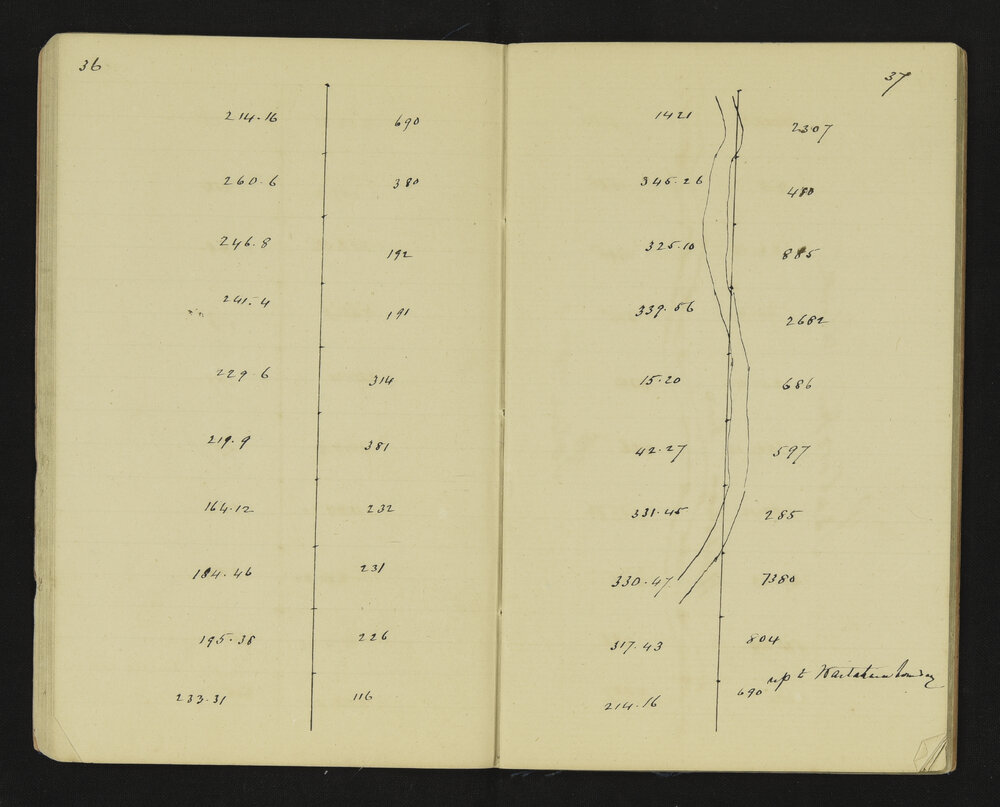 36
214.16 690
260.6 380
246.8 192
241.4 191
229.6 314
219.9 381
164.12 232
184.46 231
195.38 226
233.31 116
37
1421 2307
345.26 480
325.10 885
339.56 2682
15.20 686
42.27 597
331.45 285
330.47 7380
317.43 804
up to
214.16 690